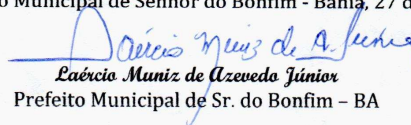 Municipal de Senhor do Bonfim - Bahia, 27 d
Laércio Muniz de A. Júnior
Laércio Muniz de Azevedo Júnior
Prefeito Municipal de Sr. do Bonfim – BA